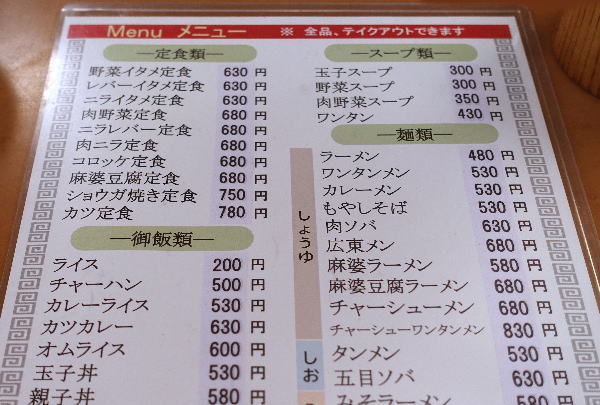 Menu メニュー ※ 全品、テイクアウトできます
―定食類―
野菜イタメ定食 630 円
レバーイタメ定食 630 円
ニライタメ定食 630 円
肉野菜定食 680 円
ニラレバー定食 680 円
肉ニラ定食 680 円
コロッケ定食 680 円
麻婆豆腐定食 680 円
ショウガ焼き定食 750 円
カツ定食 780 円
―御飯類―
ライス 200 円
チャーハン 500 円
カレーライス 530 円
カツカレー 630 円
オムライス 600 円
玉子丼 530 円
親子丼 580 円
―スープ類―
玉子スープ 300 円
野菜スープ 300 円
肉野菜スープ 350 円
ワンタン 430 円
―麺類―
しょうゆ
ラーメン 480 円
ワンタンメン 530 円
カレーメン 530 円
もやしそば 530 円
肉ソバ 630 円
広東メン 680 円
麻婆ラーメン 580 円
麻婆豆腐ラーメン 680 円
チャーシューメン 680 円
チャーシューワンタンメン 830 円
しお
タンメン 530 円
五目ソバ 630 円
みそラーメン 580 円